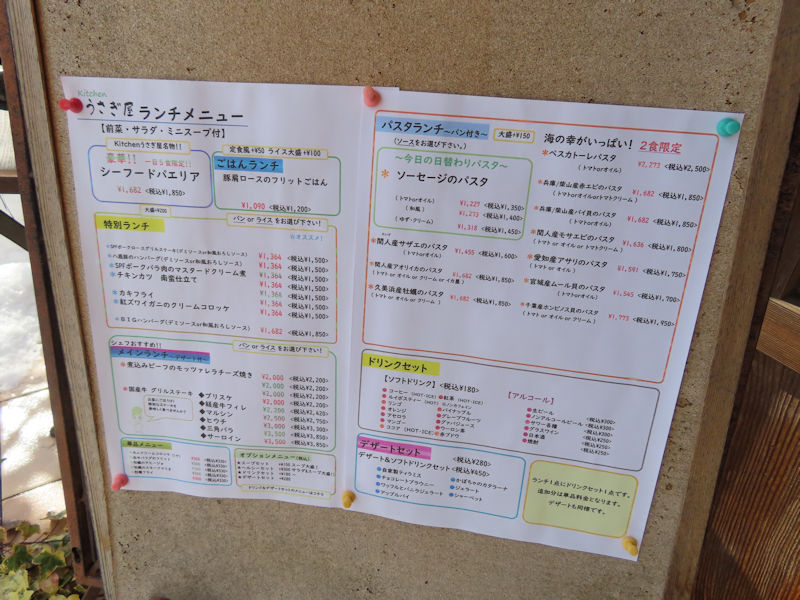 Kitchen
うさぎ屋 ランチメニュー
【前菜・サラダ・ミニスープ付】
Kitchenうさぎ屋名物!!
豪華!! 一日5食限定!!
シーフードパエリア
¥1,682 <税込¥1,850>
定食風+¥50 ライス大盛+¥100
ごはんランチ
豚肩ロースのフリットごはん
¥1,090 <税込¥1,200>
大盛+¥200
特別ランチ
パン or ライス をお選び下さい!
オススメ!
*SPFポークロースグリルステーキ(デミソースor和風おろしソース) ¥1,364 <税込¥1,500>
*八風豚のハンバーグ(デミソースor和風おろしソース) ¥1,364 <税込¥1,500>
*SPFポークバラ肉のマスタードクリーム煮 ¥1,364 <税込¥1,500>
*チキンカツ 南蛮仕立て ¥1,364 <税込¥1,500>
*カキフライ ¥1,364 <税込¥1,500>
*紅ズワイガニのクリームコロッケ ¥1,364 <税込¥1,500>
*BIGハンバーグ(デミソースor和風おろしソース) ¥1,682 <税込¥1,850>
シェフおすすめ!!
メインランチ~デザート付~
パン or ライス をお選び下さい!
*煮込みビーフのモッツァレラチーズ焼き ¥2,000 <税込¥2,200>
*国産牛 グリルステーキ
◆ブリスケ ¥2,000 <税込¥2,200>
◆経産牛フィレ
◆マルシン
◆ヒウチ
◆三角バラ
◆サーロイン ¥3,500 <税込¥3,850>
単品メニュー
オプションメニュー(税込)
ドリンク&デザートセットのメニューはコチラ
パスタランチ~パン付き~
大盛+¥150
(ソースをお選び下さい。)
~今日の日替わりパスタ~
*ソーセージのパスタ
(トマトorオイル) ¥1,227 <税込¥1,350>
(和風) ¥1,273 <税込¥1,400>
(ゆず・クリーム) ¥1,318 <税込¥1,450>
*間人産サザエのパスタ
(トマト or オイル) ¥1,455 <税込¥1,600>
*間人産アオリイカのパスタ
(トマト or オイル or クリーム or イカ墨) ¥1,682 <税込¥1,850>
*久美浜産牡蠣のパスタ
(トマト or オイル or クリーム) ¥1,682 <税込¥1,850>
海の幸がいっぱい! 2食限定
*ペスカトーレパスタ
(トマトorオイル) ¥2,273 <税込¥2,500>
*兵庫/柴山産赤エビのパスタ
(トマトorオイルorトマトクリーム) ¥1,682 <税込¥1,850>
*兵庫/柴山産バイ貝のパスタ
(トマトorオイル) ¥1,682 <税込¥1,850>
*間人産モサエビのパスタ
(トマト or オイル or トマトクリーム) ¥1,636 <税込¥1,800>
*愛知産アサリのパスタ
(トマト or オイル) ¥1,591 <税込¥1,750>
*宮城産ムール貝のパスタ
(トマトorオイル) ¥1,545 <税込¥1,700>
*千葉産ホンビノス貝のパスタ
(トマト or オイル or クリーム) ¥1,773 <税込¥1,950>
ドリンクセット
【ソフトドリンク】 <税込¥180>
●コーヒー (HOT・ICE)
●ルイボスティー (HOT)
●リンゴ
●オレンジ
●アセロラ
●マンゴー
●ココア (HOT・ICE)
●紅茶 (HOT・ICE)
※ノンカフェイン
●パイナップル
●グレープフルーツ
●グァバジュース
●ウーロン茶
●赤ブドウ
【アルコール】
●生ビール
●ノンアルコールビール <税込¥300>
●サワー各種
●グラスワイン
●日本酒
●焼酎
デザートセット <税込¥280>
デザート&ソフトドリンクセット <税込¥450>
●自家製ティラミス
●チョコレートブラウニー
●ワッフルとバニラジェラート
●アップルパイ
●かぼちゃのカタラーナ
●ジェラート
●シャーベット
ランチ1点にドリンクセット1点です。
追加分は単品料金となります。
デザートも同様です。